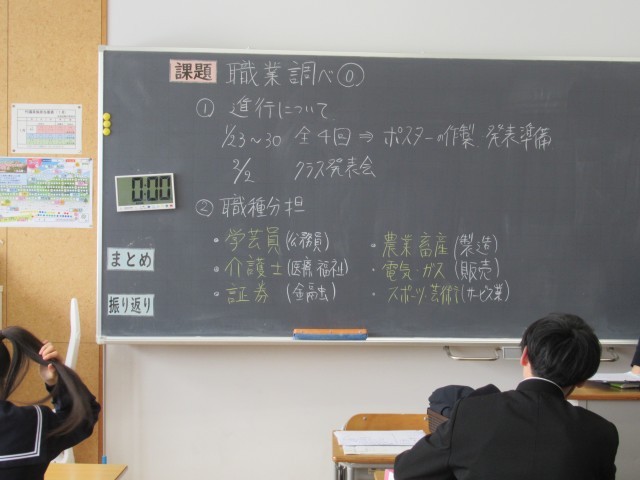 課題 職業調べ⓪
① 進行について
1/23~30 全4回 ⇒ ポスターの作製、発表準備
2/2 クラス発表会
0:00
② 職種分担
・学芸員(公務員)
・農業畜産(製造)
・介護士(医療福祉)
・電気・ガス(販売)
・証券(金融)
・スポーツ・芸術(サービス業)
まとめ
振り返り